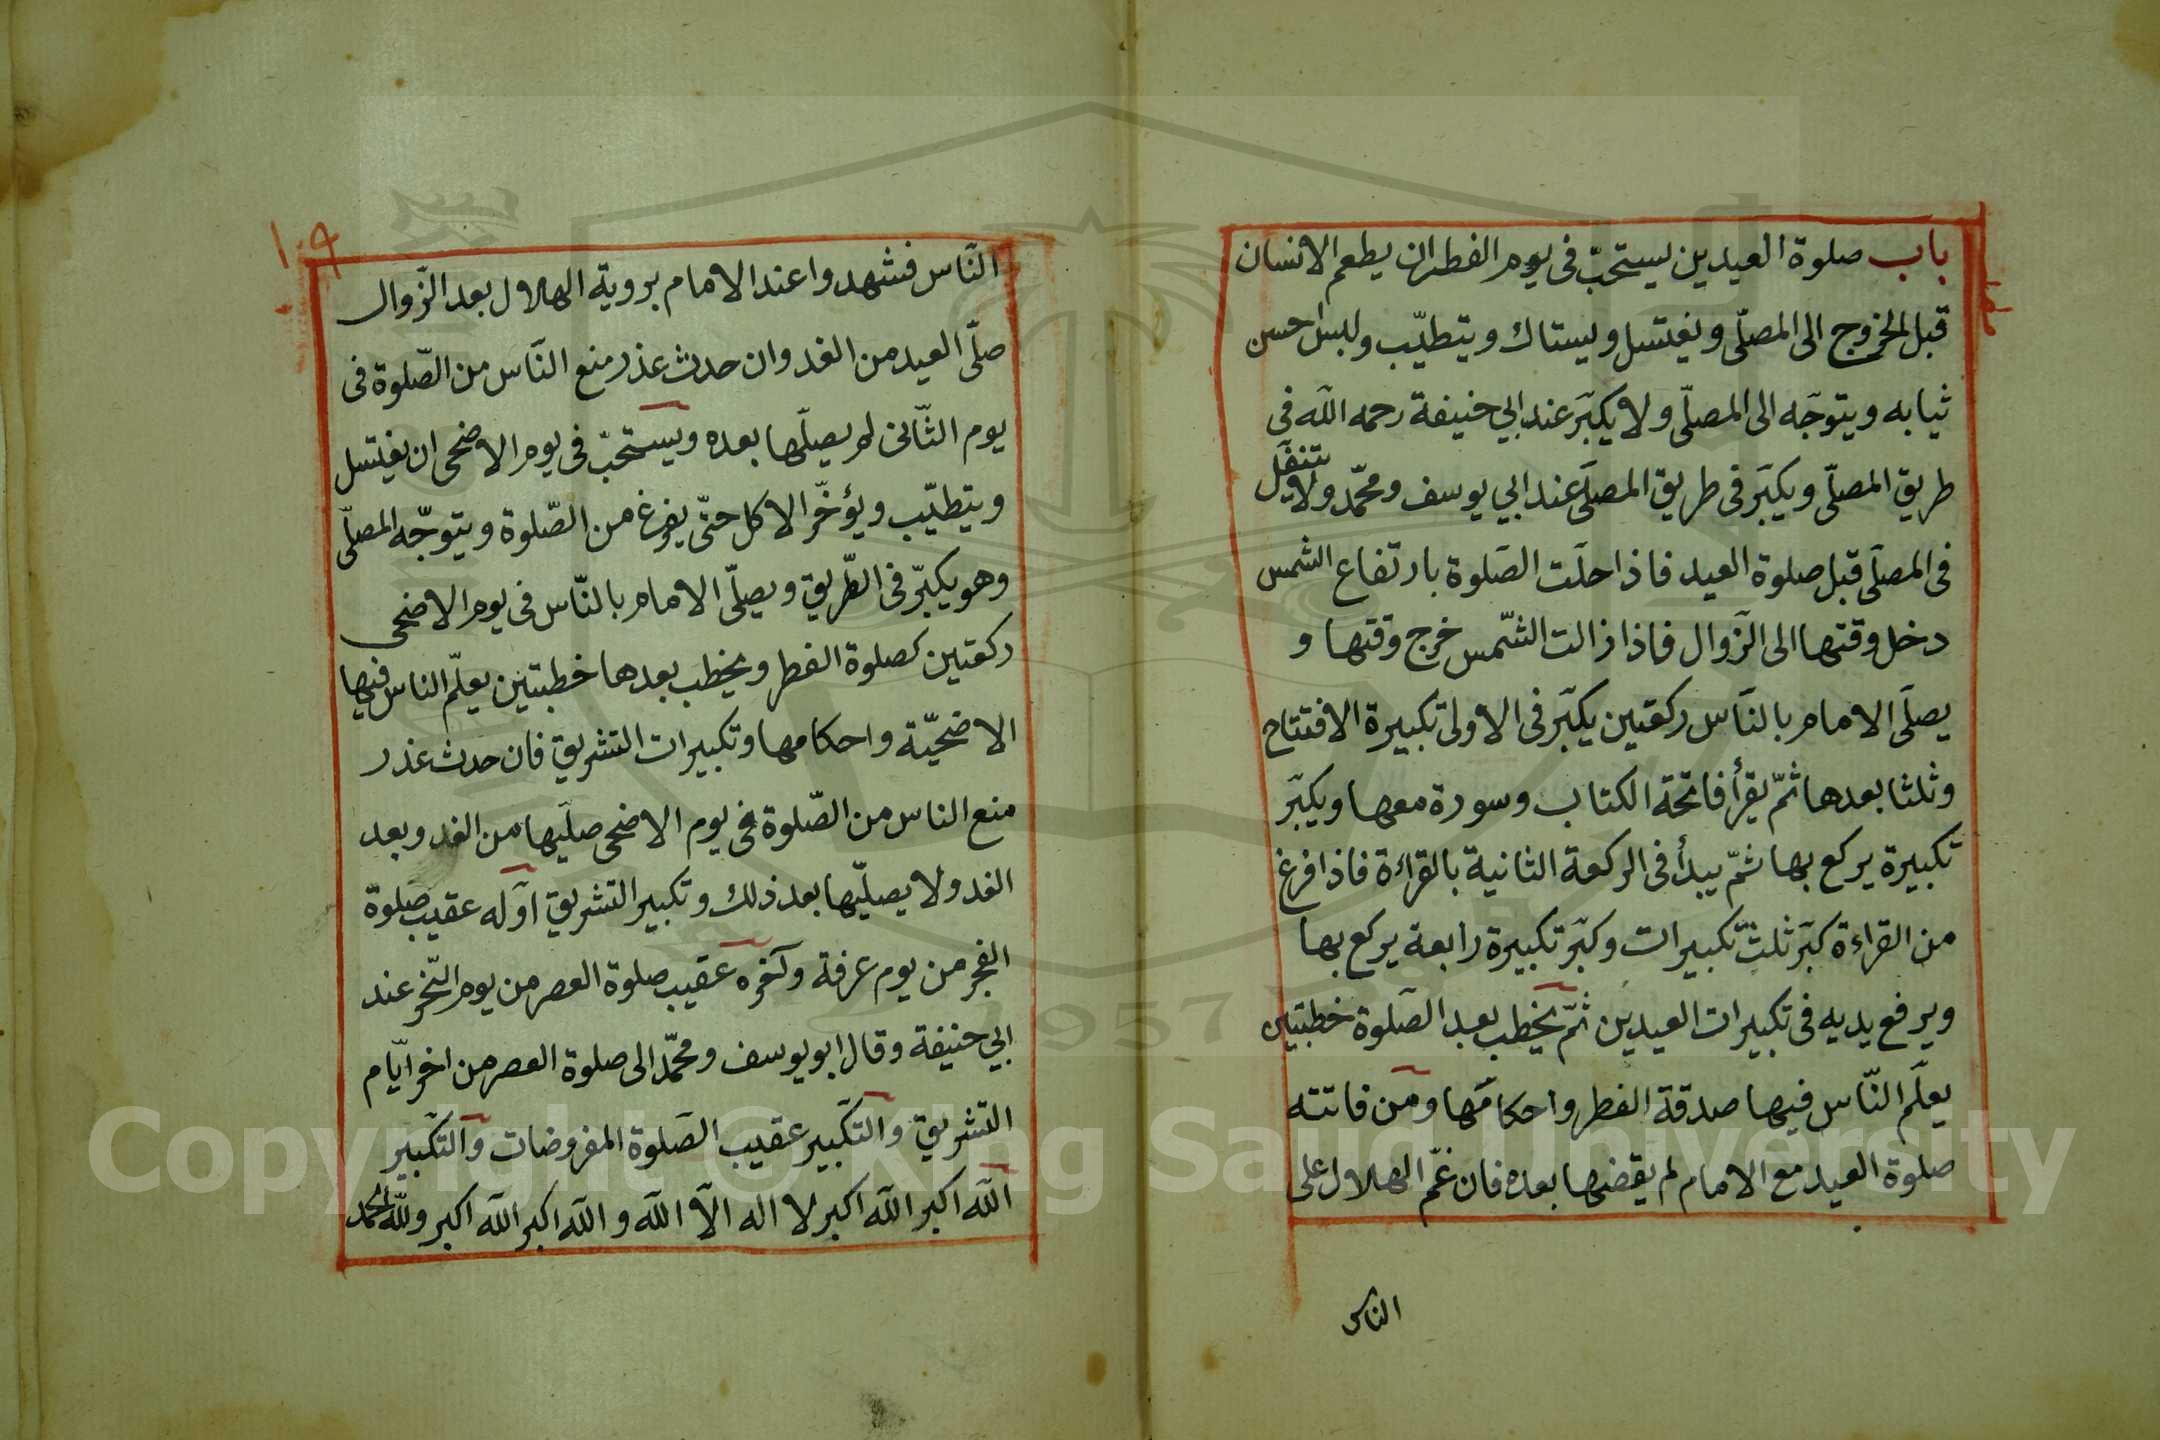 باب صلوة العيدين يستحبّ فى يوم الفطر ان يطعم الانسان
قبل الخروج الى المصلّى ويغتسل ويستاك ويتطيّب ولبس احسن
ثيابه ويتوجّه الى المصلّى ولا يكبّر عند ابي حنيفة رحمه اللّه فى
طريق المصلّى ويكبّر فى طريق المصلّى عند ابي يوسف ومحمّد ولا يتنفّل
فى المصلّى قبل صلوة العيد فاذا حلّت الصّلوة بارتفاع الشمس
دخل وقتها الى الزّوال فاذا زالت الشّمس خرج وقتها و
يصلّى الامام بالنّاس ركعتين يكبّر فى الاولى تكبيرة الافتتاح
وثلثا بعدها ثمّ يقرأ فاتحة الكتاب وسورة معها ويكبّر
تكبيرة يركع بها ثمّ يبدأ فى الركعة الثانية بالقراءة فاذا فرغ
من القراءة كبّر ثلث تكبيرات وكبّر تكبيرة رابعة يركع بها
ويرفع يديه فى تكبيرات العيدين ثمّ يخطب بعد الصّلوة خطبتين
يعلّم النّاس فيها صدقة الفطر واحكامها ومن فاتته
صلوة العيد مع الامام لم يقضها بعده فان غمّ الهلال على
الناس
١٠٩
النّاس فشهدوا عند الامام بروية الهلال بعد الزّوال
صلّى العيد من الغد وان حدث عذر منع النّاس من الصّلوة فى
يوم الثّانى لم يصلّها بعده ويستحبّ فى يوم الاضحى ان يغتسل
ويتطيّب ويؤخّر الاكل حتّى يفرغ من الصّلوة ويتوجّه المصلّى
وهو يكبّر فى الطّريق ويصلّى الامام بالنّاس فى يوم الاضحى
ركعتين كصلوة الفطر ويخطب بعدها خطبتين يعلّم الناس فيها
الاضحيّة واحكامها وتكبيرات التشريق فان حدث عذر
منع الناس من الصّلوة فى يوم الاضحى صلّيها من الغد وبعد
الغد ولا يصلّيها بعد ذلك وتكبير التشريق اوّله عقيب صلوة
الفجر من يوم عرفة وآخره عقيب صلوة العصر من يوم النّحر عند
ابي حنيفة وقال ابو يوسف ومحمّد الى صلوة العصر من اخر ايّام
التشريق والتكبير عقيب الصّلوة المفروضات والتكبير
اللّه اكبر اللّه اكبر لا اله الّا اللّه و اللّه اكبر اللّه اكبر وللّه الحمد
Copyright © King Saud University
1957